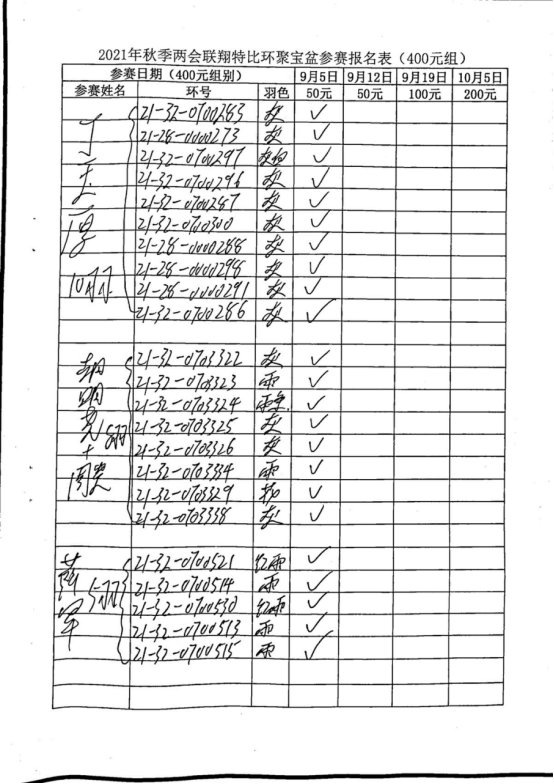 2021年秋季两会联翔特比环聚宝盆参赛报名表（400元组）
参赛日期（400元组别） 9月5日 9月12日 9月19日 10月5日
参赛姓名 环号 羽色 50元 50元 100元 200元
21-32-0700283 灰 ✓
21-28-0000273 灰 ✓
21-32-0700297 ✓
21-32-0700296 灰 ✓
21-32-0700287 灰 ✓
21-32-0700300 灰 ✓
21-28-0000288 灰 ✓
21-28-0000298 灰 ✓
10羽 21-28-0000291 灰 ✓
21-32-0700286 灰 ✓
21-32-0703322 灰 ✓
21-32-0703323 雨 ✓
21-32-0703324 ✓
21-32-0703325 灰 ✓
8羽 21-32-0703326 灰 ✓
21-32-0703334 雨 ✓
21-32-0703329 ✓
21-32-0703338 灰 ✓
21-32-0700521 红雨 ✓
5羽 21-32-0700514 雨 ✓
21-32-0700530 红雨 ✓
21-32-0700513 雨 ✓
21-32-0700515 雨 ✓